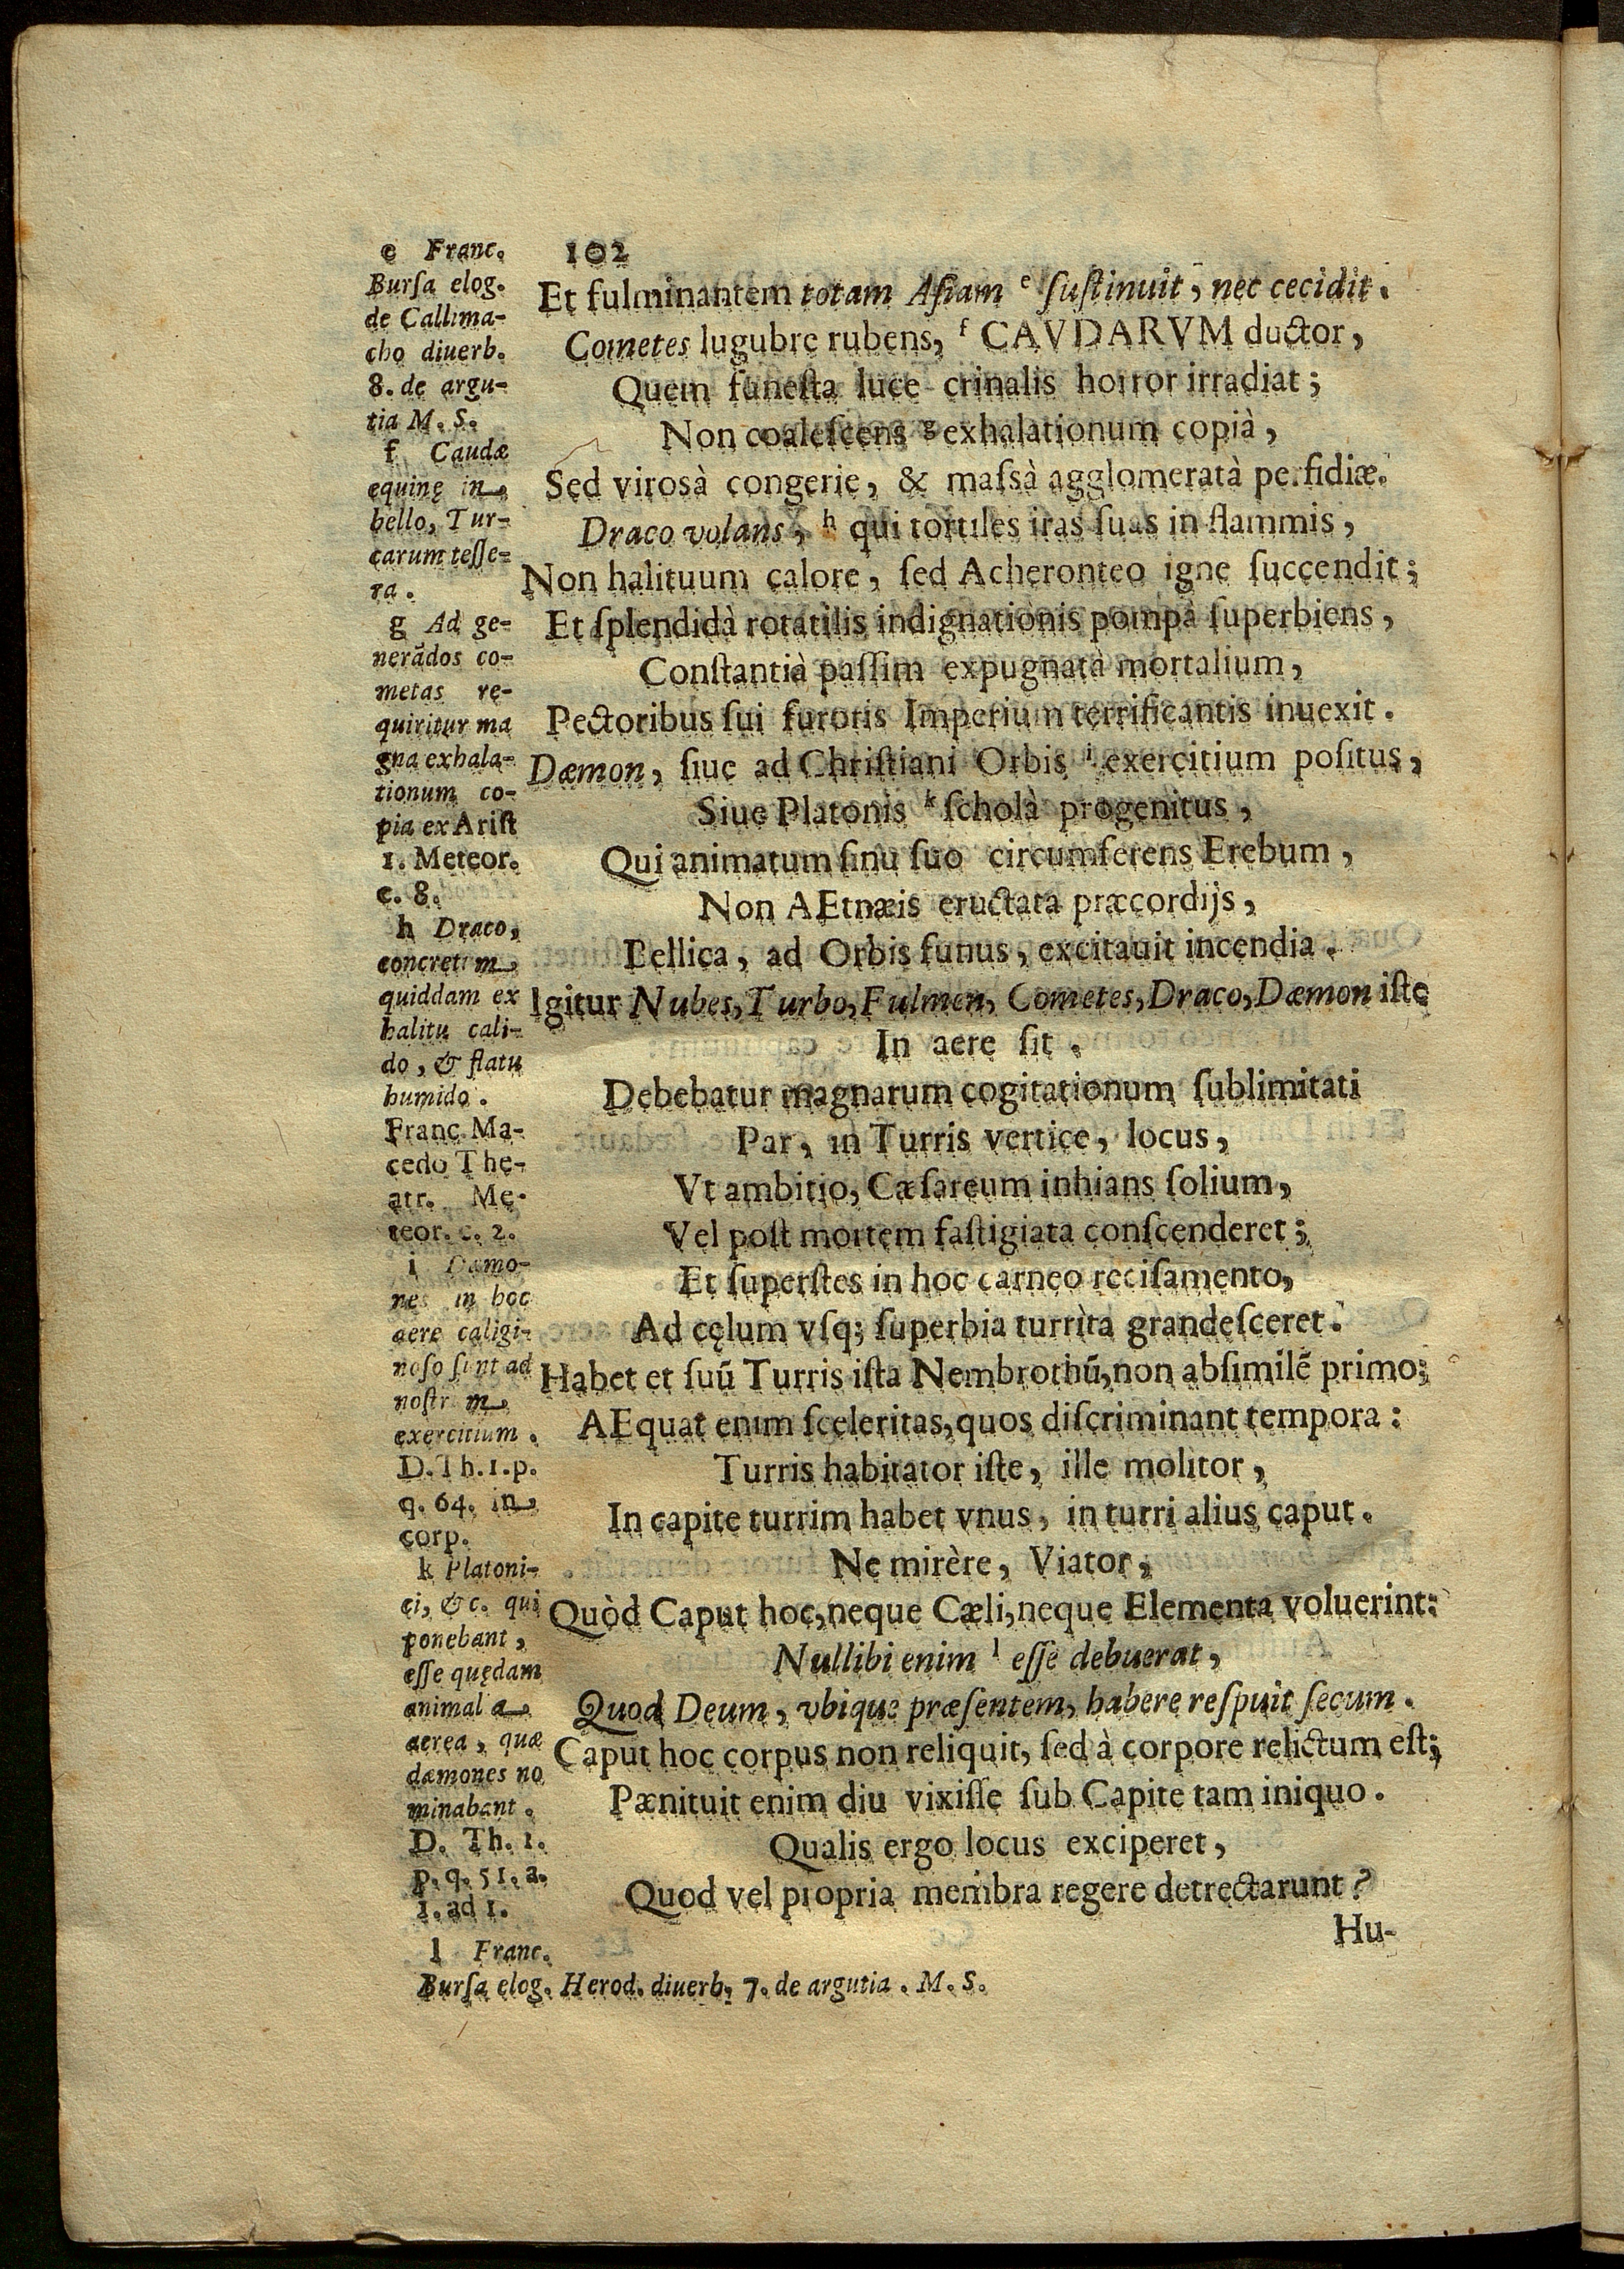 102
Et fulminantem totam Asiam e ſuſtinuit, nec cecidit.
Cometes lugubre rubens, f CAVDARVM ductor,
Quem funeſta luce crinalis horror irradiat;
Non coaleſcens g exhalationum copià,
Sed viroſà congerie, & maſsà agglomeratà perfidiæ.
Draco volans, h qui tortiles iras ſuas in flammis,
Non halituum calore, ſed Acheronteo igne ſuccendit;
Et ſplendidà rotatilis indignationis pompà ſuperbiens,
Conſtantià paſſim expugnatà mortalium,
Pectoribus ſui furoris Imperium terrificantis inuexit.
Dæmon, ſiue ad Chriſtiani Orbis i exercitium poſitus,
Siue Platonis k ſcholà progenitus,
Qui animatum ſinu ſuo circumferens Erebum,
Non AEtnæis eructata præcordijs,
Bellica, ad Orbis funus, excitauit incendia.
Igitur Nubes, Turbo, Fulmen, Cometes, Draco, Dæmon iſte
In aere ſit.
Debebatur magnarum cogitationum ſublimitati
Par, in Turris vertice, locus,
Vt ambitio, Cæſareum inhians ſolium,
Vel poſt mortem faſtigiata conſcenderet;
Et ſuperſtes in hoc carneo reciſamento,
Ad cęlum vſq; ſuperbia turrìta grandeſceret.
Habet et ſuū Turris iſta Nembrothū, non abſimilē primo;
AEquat enim ſceleritas, quos diſcriminant tempora:
Turris habitator iſte, ille molitor,
In capite turrim habet vnus, in turri alius caput.
Ne mirère, Viator,
Quòd Caput hoc, neque Cæli, neque Elementa voluerint:
Nullibi enim l eſſe debuerat,
Quod Deum, vbique præſentem, habere reſpuit ſecum.
Caput hoc corpus non reliquit, ſed à corpore relictum eſt;
Pænituit enim diu vixiſſe ſub Capite tam iniquo.
Qualis ergo locus exciperet,
Quod vel propria membra regere detrectarunt?
Hu-
e Franc.
Burſa elog.
de Callima-
cho diuerb.
8. de argu-
tia M. S.
f Caudæ
equinę in
bello, Tur-
carum teſſe-
ra.
g Ad ge-
nerādos co-
metas re-
quiritur ma
gna exhala-
tionum co-
pia ex Ariſt
1. Meteor.
c. 8.
h Draco,
concretum
quiddam ex
halitu cali-
do, & flatu
humido.
Franc. Ma-
cedo The-
atr. Me-
teor. c. 2.
i Dæmo-
nes in hoc
aere caligi-
noſo ſunt ad
noſtrum
exercitium.
D. Th. 1. p.
q. 64. in
corp.
k Platoni-
ci, &c. qui
ponebant,
eſſe quędam
animalia
aerea, quæ
dæmones no
minabant.
D. Th. 1.
p. q. 51. a.
1. ad 1.
l Franc.
Burſa elog. Herod. diuerb. 7. de argutia. M. S.